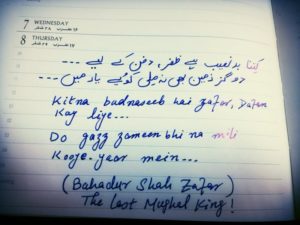 7 WEDNESDAY
8 THURSDAY
کتنا بدنصیب ہے ظفر، دفن کے لیے ---
دو گز زمین بھی نہ ملی کوئے یار میں ---
Kitna badnaseeb hai zafar, Dafan
Kay liye...
Do gazz zameen bhi na mili
Kooye-yaar mein...
(Bahadur Shah Zafar)
The Last Mughal King!